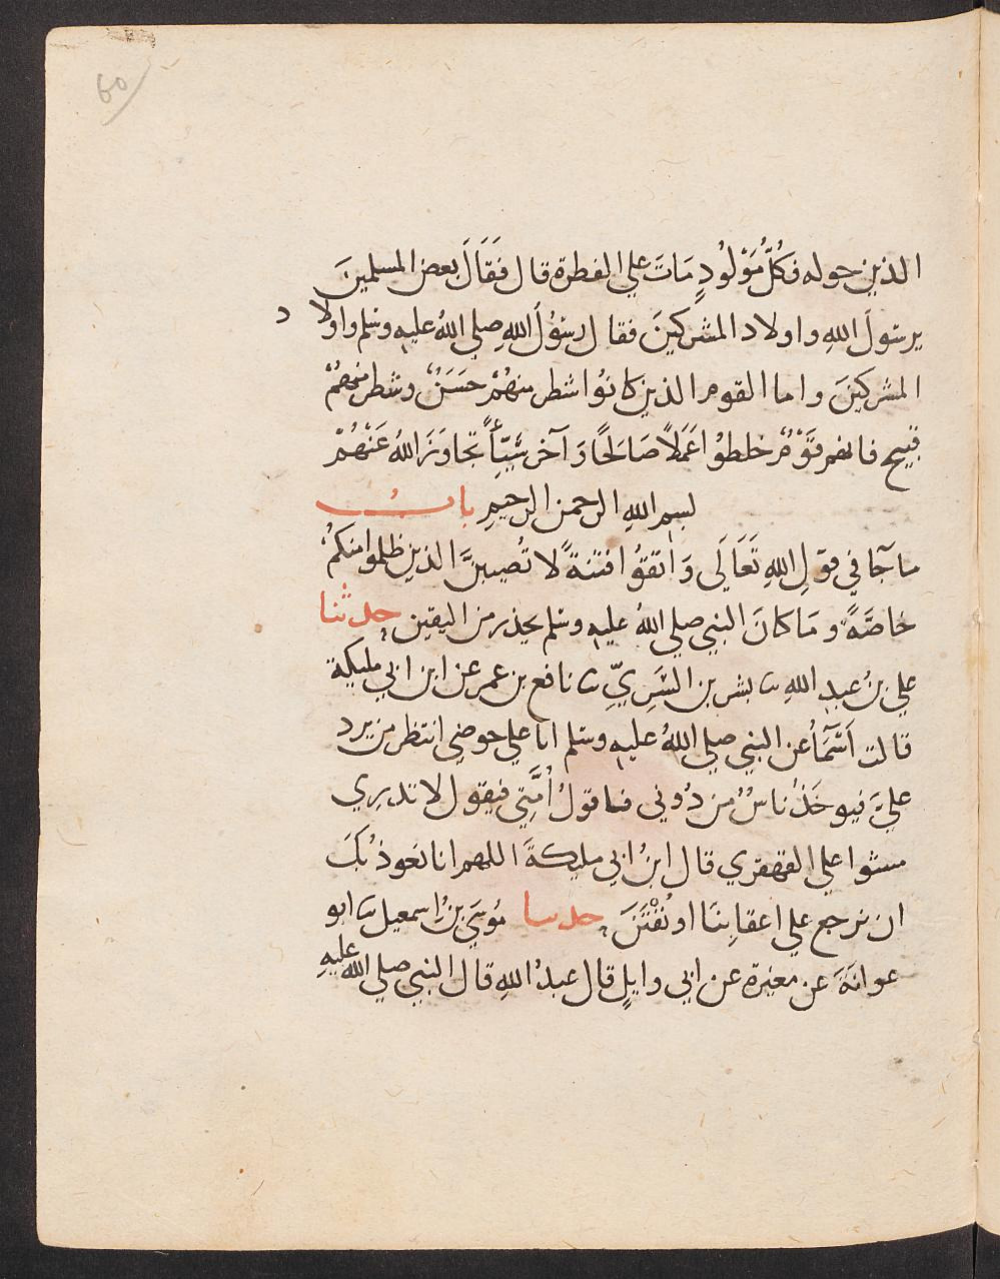 60
الذين حوله فكُلُّ مَوْلُودٍ مَاتَ علي الفطرة قال فَقَالَ بعض المسلمينَ
يرسولَ اللهِ واولاد المشركينَ فقال رسُوْلُ اللهِ صلي اللهُ عليهِ وسلم واولاد
المشركينَ واما القوم الذين كانُوا شطر منهُمْ حَسَنٌ وشطر منهُمْ
قبيح فانهم قَوْمٌ خلطُوا عَمَلاً صَالحًا وَآخر سَيّأً تجاوَزَ اللهُ عَنْهُمْ
بسم اللهِ الرحمن الرحيمِ بابُ
ما جَآ في قوْلِ اللهِ تَعَالَى وَاتقوُا فتنةً لا تُصيبنَّ الذين ظلموا منكمُ
خاصَّةً وَمَا كانَ النبي صلي اللهُ عليهِ وسلم يحذر من اليقين حدثنا
علي بنُ عبد اللهِ ثنا بشر بن السَرِيِّ ثنا نافع بن عمر عن ابن ابي مليكة
قالت اَسَمَآُ عن النبي صلي اللهُ عليهِ وسلم انا علي حوضي انتظر من يرد
عليَّ فيوخَذُ ناسٌ من دُوني فاقولُ اُمَّتي فيقول لا تدري
مشوا علي القهقري قال ابنُ ابي مليكةَ اللهم انا نعوذ بكَ
ان نرجع علي اعقابنَا او نُفْتَنَ حدثنا مُوسيَ بنُ اسمعيل ثنا ابو
عوانَةَ عن مغيرة عن ابي وايلٍ قال عبدُ اللهِ قال النبي صلي الله عليهِ